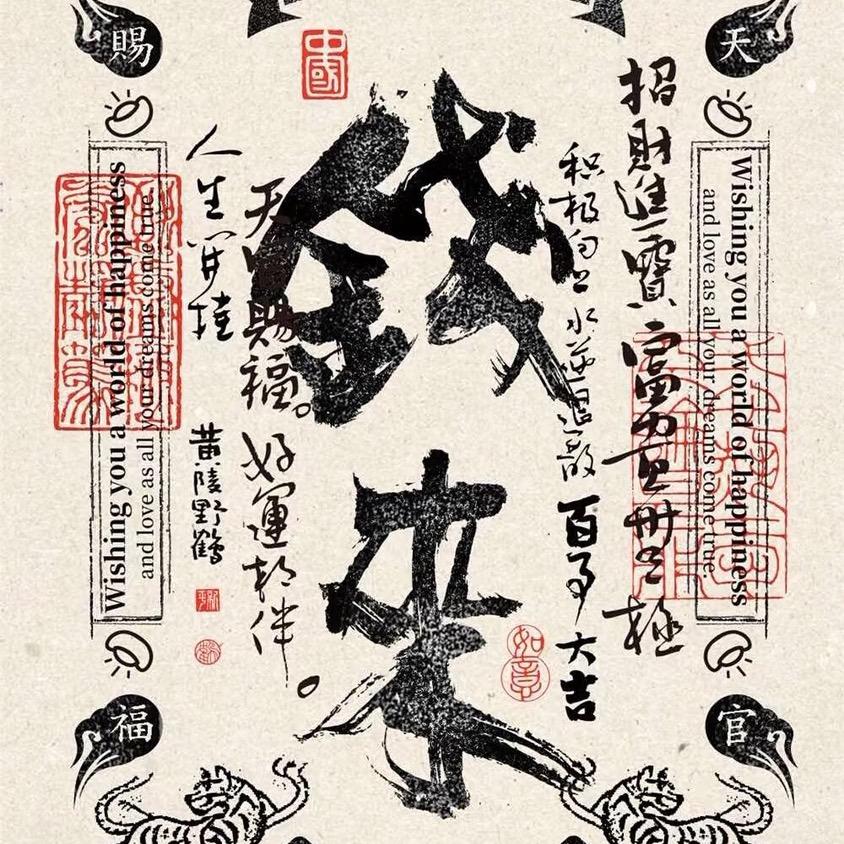 天
官
賜
福
中國
錢
來
招財進寶
富可
極
积极向上水逆退散百事大吉
如意
天官賜福。好運相伴。
人生開挂
黄陵野鶴
Wishing you a world of happiness
and love as all your dreams come true.
Wishing you a world of happiness
and love as all your dreams come true.